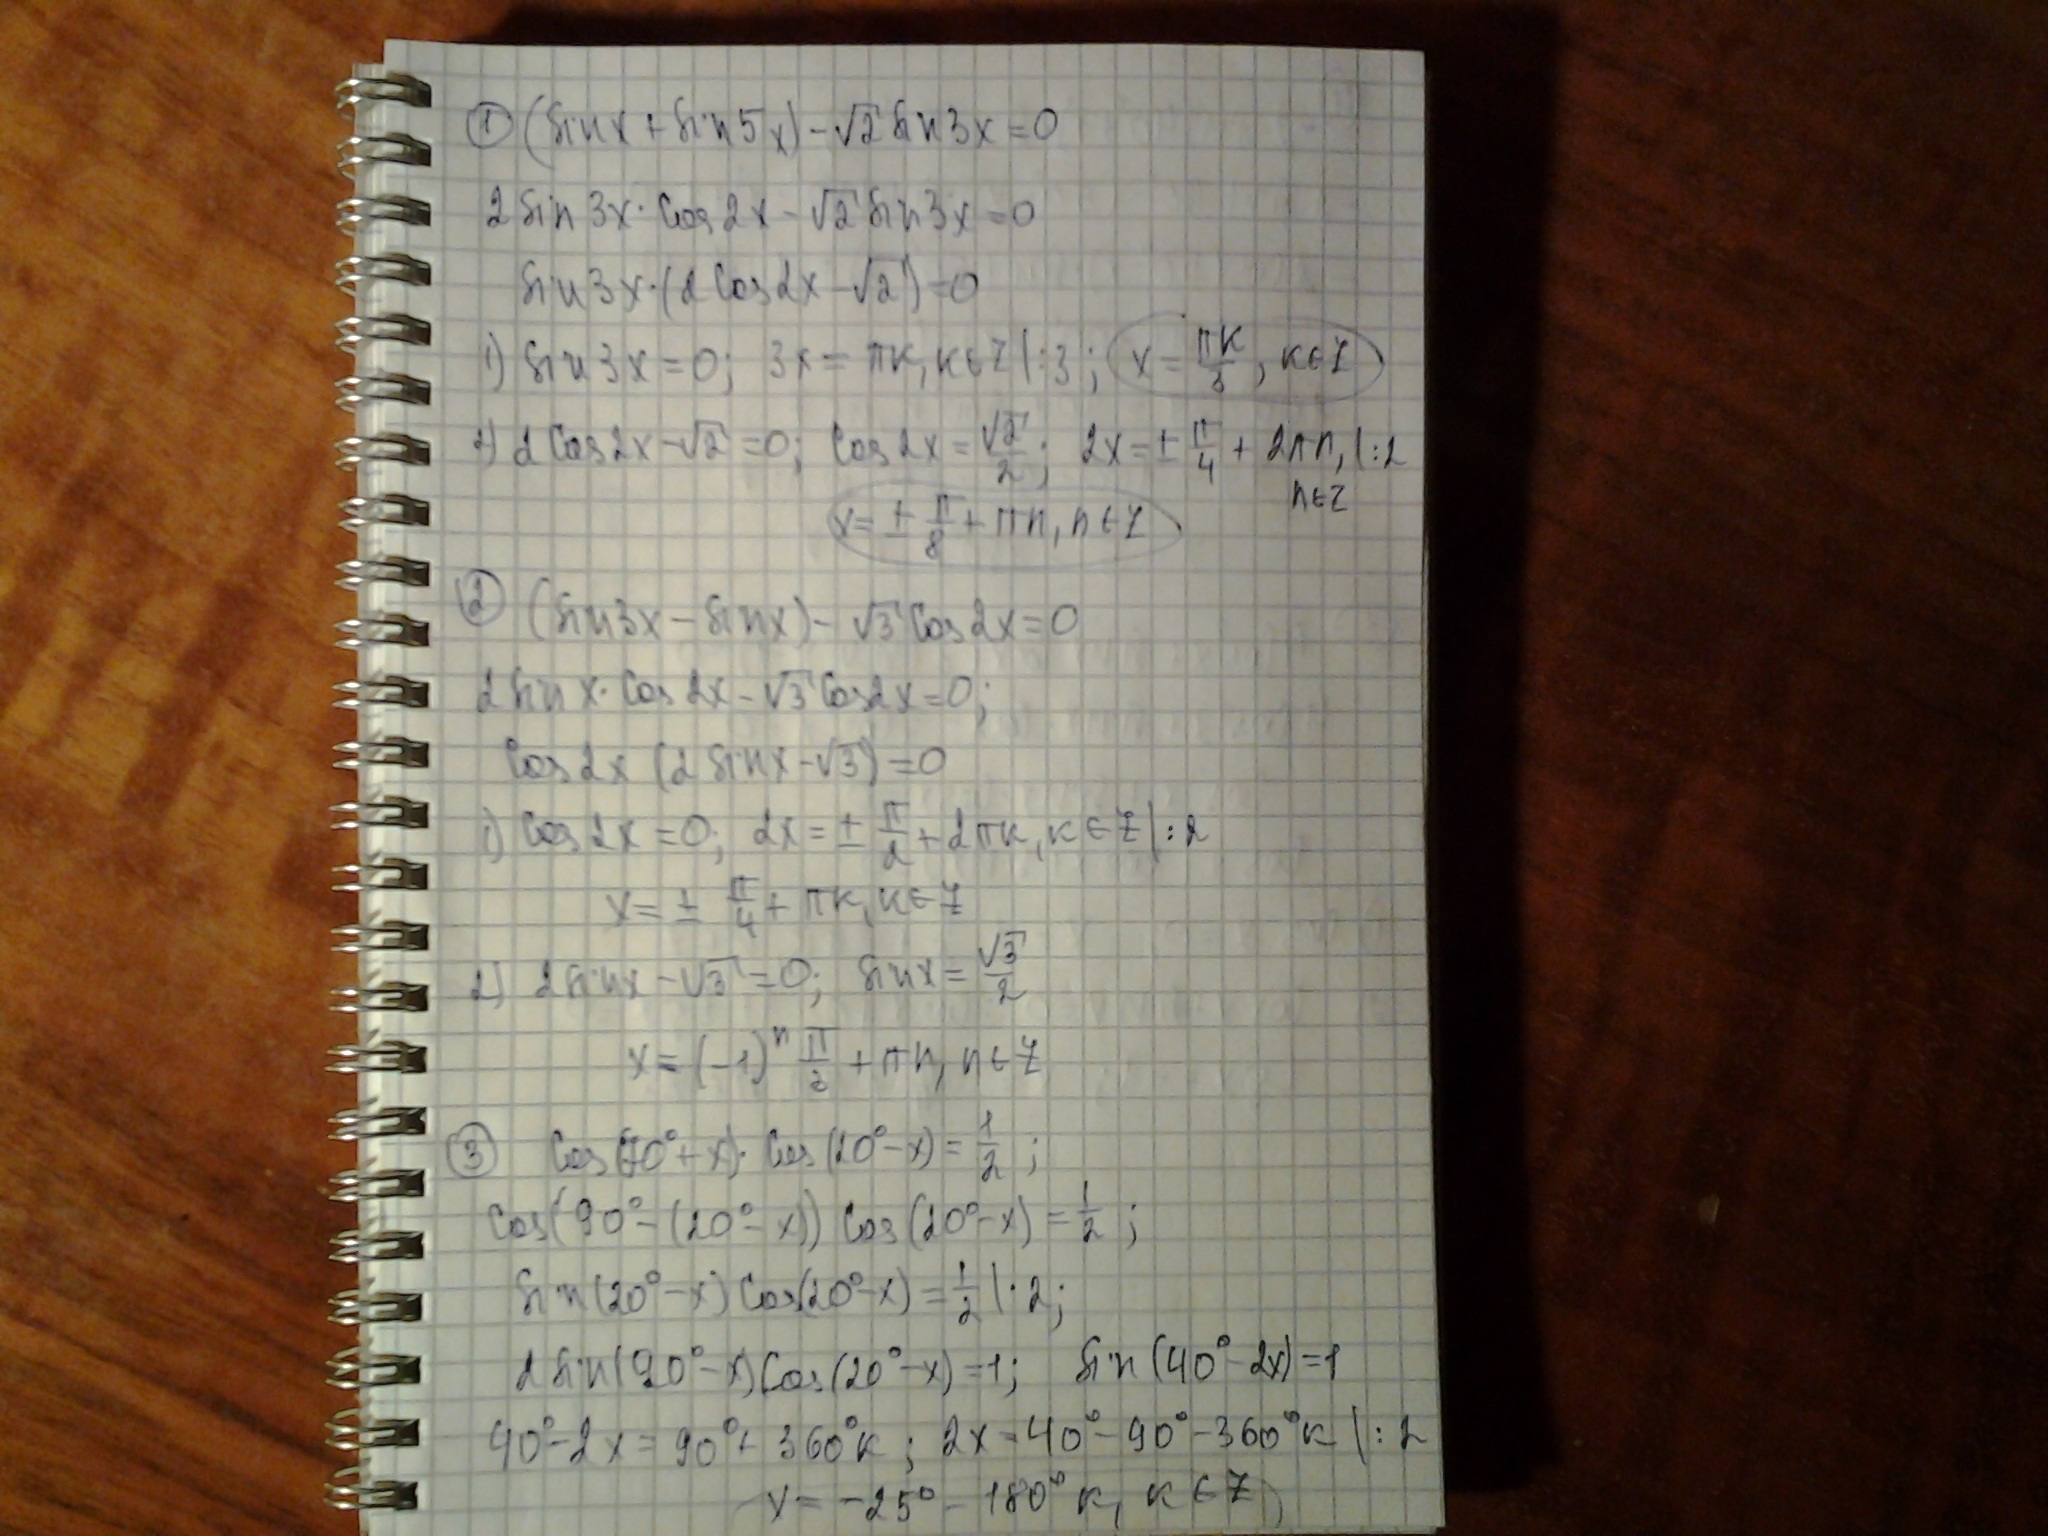 ① (sinx + sin5x) - √2 sin3x = 0
2 sin3x · cos2x - √2 sin3x = 0
sin3x · (2cos2x - √2) = 0
1) sin3x = 0; 3x = πк, к∈Z |:3; x = πк/3, к∈Z
2) 2cos2x - √2 = 0; cos2x = √2/2; 2x = ± π/4 + 2πn, |:2
n∈Z
x = ± π/8 + πn, n∈Z
② (sin3x - sinx) - √3 cos2x = 0
2 sinx · cos2x - √3 cos2x = 0;
cos2x (2 sinx - √3) = 0
1) cos2x = 0; 2x = ± π/2 + 2πк, к∈Z |:2
x = ± π/4 + πк, к∈Z
2) 2sinx - √3 = 0; sinx = √3/2
x = (-1)ⁿ π/3 + πn, n∈Z
③ cos(70° + x) · cos(20° - x) = 1/2;
cos(90° - (20° - x)) cos(20° - x) = 1/2;
sin(20° - x) cos(20° - x) = 1/2 |·2;
2 sin(20° - x) cos(20° - x) = 1; sin(40° - 2x) = 1
40° - 2x = 90° + 360°к; 2x = 40° - 90° - 360°к |:2
x = -25° - 180°к, к∈Z